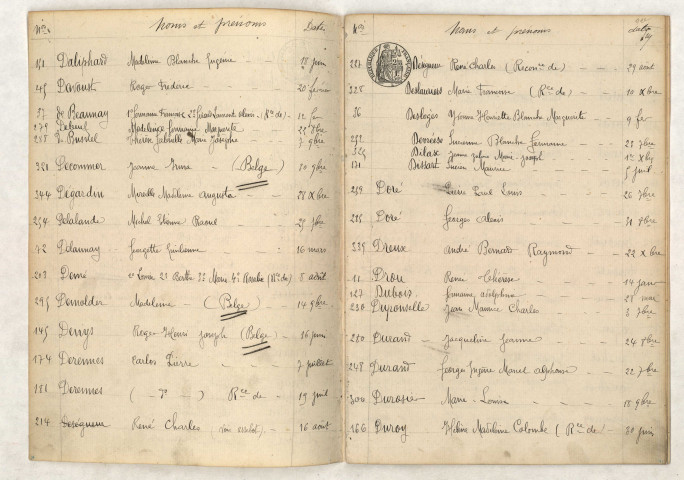 Nos Noms et prénoms Dates
151 Daliphard Madeleine Blanche Eugénie 18 juin
45 Davoust Roger Frédéric 20 février
37 de Beaunay
279 Debreuil Madeleine Germaine Marguerite 22 8bre
288 Gabrielle Marie Josèphe 7 9bre
320 Decommer Jeanne Irma (Belge) 30 9bre
344 Degardin Mireille Madeleine Augusta 28 Xbre
254 Delalande Michel Etienne Raoul 29 7bre
72 Delaunay Georgette Guislaine 16 mars
203 Demé 1° Louise 2° Berthe 3° Marie 4° (Rce de) 8 août
295 Demolder Madeleine (Belge) 14 9bre
145 Denys Roger Henri Joseph (Belge) 16 juin
174 Derennes Carlos Pierre 7 juillet
181 Derennes ( - do - ) Rce de 19 juil
214 Deségneux René Charles 16 août
Nos Noms et prénoms dates
227 Deségneux René Charles (Reconce de) 29 août
328 Desbaurans Marie Francine (Rce de) 10 Xbre
36 Desloges Yvonne Henriette Blanche Marguerite 9 fer
252 Devrèse Suzanne Blanche Germaine 29 7bre
325 Dilasx Jeanne Marie Joseph Xbre
171 Dessart Lucien Maurice 5 juil
249 Doré Pierre Paul Louis 26 7bre
285 Doré Georges Alexis 31 8bre
335 Dreux André Bernard Raymond 22 Xbre
11 Drou Renée Thérèse 14 janv
127 Dubois Germaine Adolphine 28 mai
230 Duponselle Jean Maurice Charles 3 7bre
280 Durand Jacqueline Jeanne 24 8bre
248 Durand Georges Eugène Marcel Alphonse 22 7bre
300 Durosie Marie Louise 18 9bre
166 Duroy Hélène Madeleine Colombe (Rce de) 30 juin